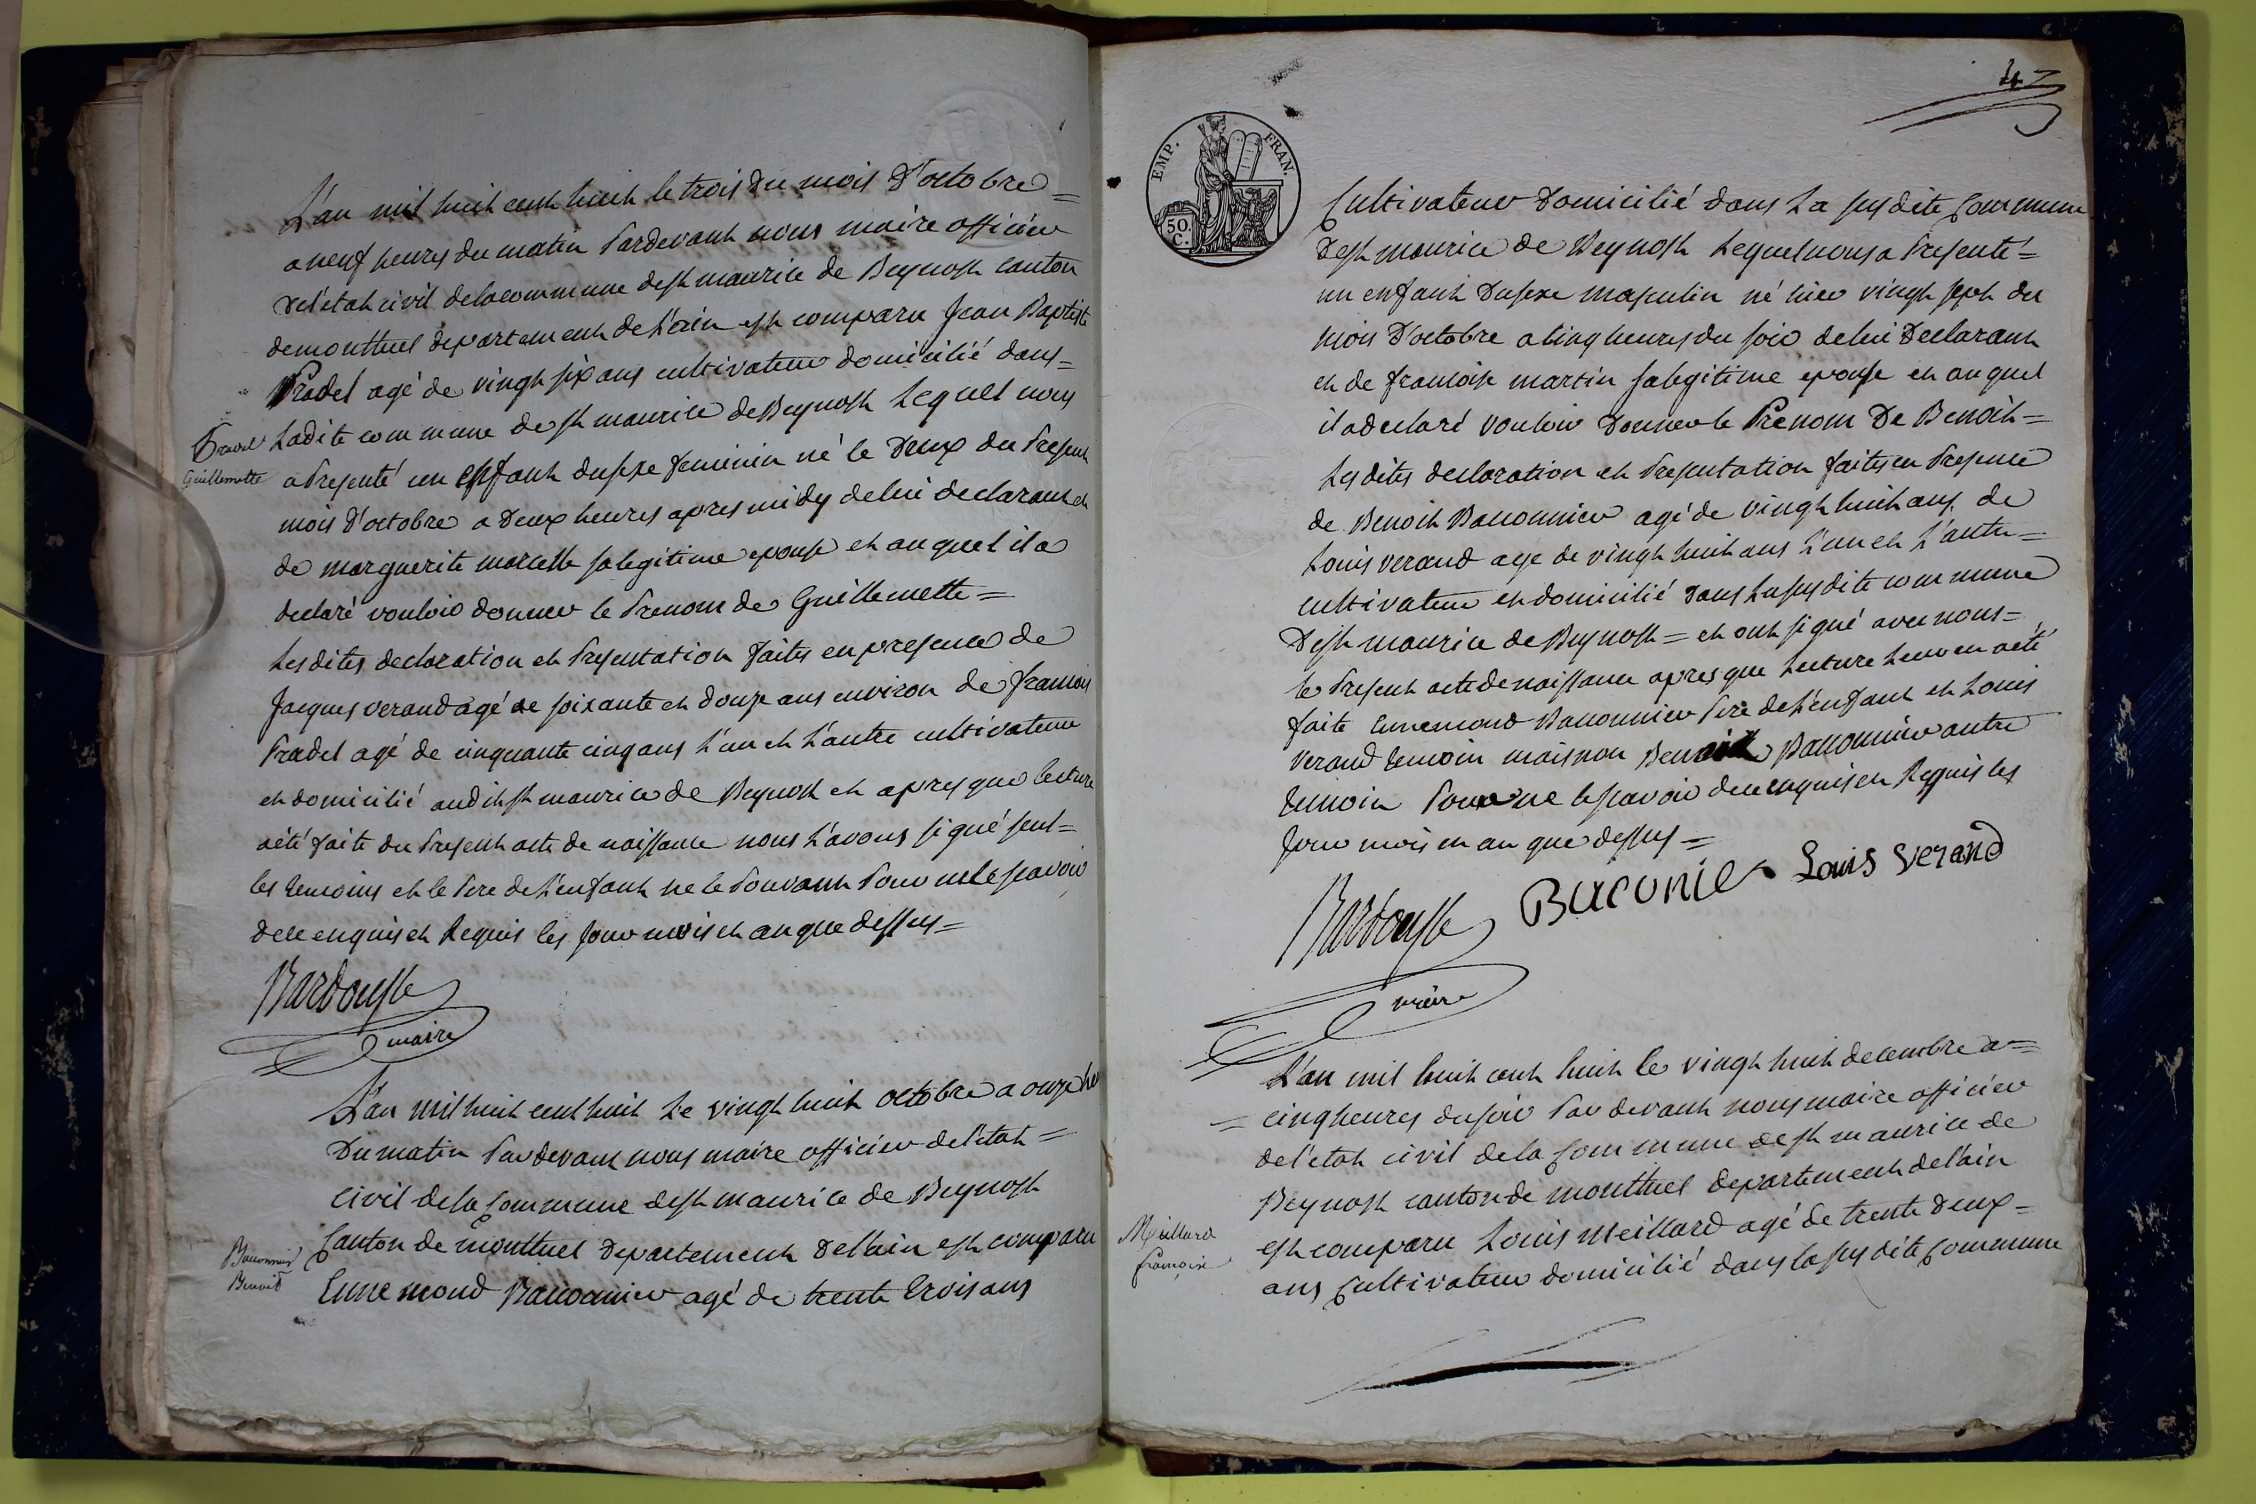 L'an mil huit cent huit le trois du mois d'octobre =
a neuf heures du matin Pardevant nous maire officier
de l'état civil de la commune de st maurice de Beynost canton
de montluel departement de l'ain est comparu Jean Baptiste
Pradel agé de vingt six ans cultivateur domicilié dans =
Pradel
Guillemette
Ladite commune de st maurice de Beynost Lequel nous
a Presenté un enfant du sexe feminin né le Deux du Present
mois d'octobre a Deux heures apres midy de lui declarant et
de marguerite sa legitime epouse et au quel il a
declaré vouloir donner le Prenom de Guillemette =
Les dites declaration et Presentation faites en presence de
Jacques verand agé de soixante et douze ans environ de francois
Pradel agé de cinquante cinq ans L'un et L'autre cultivateur
et domicilié audit st maurice de Beynost et apres que lecture
a été faite du Present acte de naissance nous L'avons signé seul =
les temoins et le Pere de L'enfant ne le Pouvant Pour ne le scavoir
de ce enquis et Requis les jour mois et an que dessus =
Bardousse
maire
L'an mil huit cent huit Le vingt huit octobre a onze heu
Du matin Par devant nous maire officier de l'etat =
Civil de la Commune de st maurice de Beynost
Canton de montluel Departement De l'ain est comparu
Baconnier
Benoit
Ennemond Baconnier agé de trente trois ans
EMP. FRAN.
50.
C.
42
Cultivateur Domicilié dans La sus dite Commune
De st maurice de Beynost Lequel nous a Presenté =
un enfant Du sexe masculin né hier vingt sept du
mois D'octobre a Cinq heures du soir de lui Declarant
et de francoise martin sa legitime epouse et au quel
il a declaré vouloir Donner le Prenom De Benoit =
Les dites declaration et Presentation faites en Presence
de Benoit Baconnier agé de vingt huit ans, de
Louis verand age de vingt huit ans L'un et L'autre =
cultivateur et domicilié Dans La sus dite commune
De st maurice de Beynost = et ont signé avec nous =
le Present acte de naissance apres que Lecture Leur en a été
faite Ennemond Baconnier Pere de L'enfant et Louis
verand temoin mais non Benoit Baconnier autre
temoin Pour ne le scavoir de ce enquis et Requis les
Jour mois et an que dessus =
Bardousse Baconier Louis verand
maire
L'an mil huit cent huit le vingt huit decembre a =
= cinq heures du soir Par devant nous maire officier
de l'etat civil de la Commune de st maurice de
Beynost canton de montluel departement de l'ain
Meillard
françoise
est comparu Louis Meillard agé de trente Deux =
ans Cultivateur domicilié dans la sus dite Commune